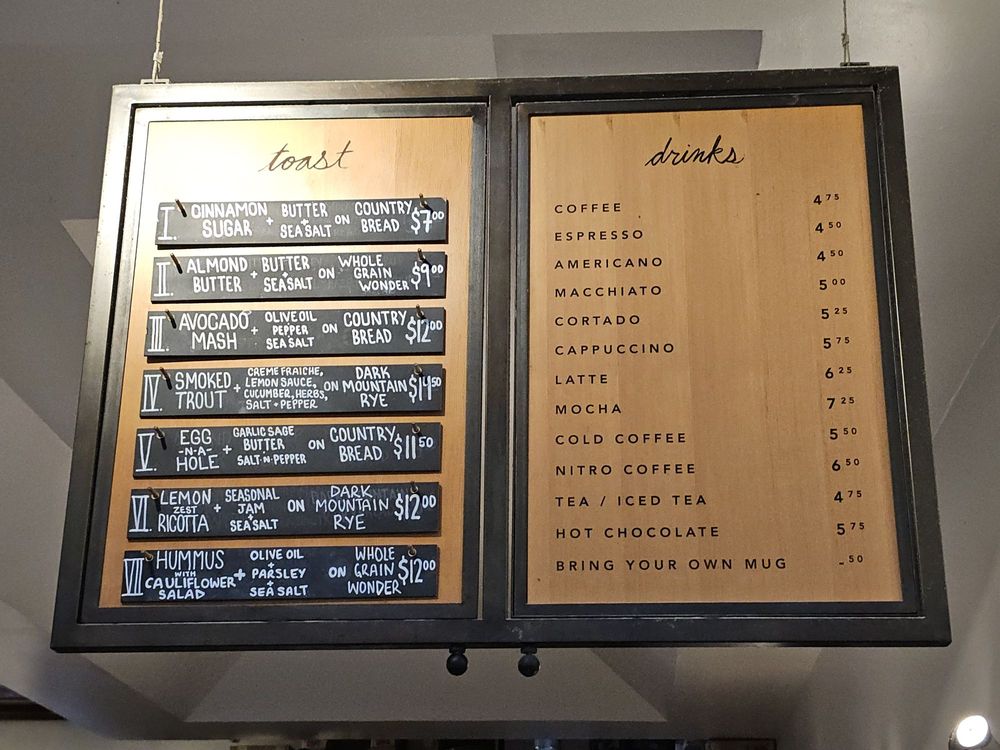 toast
I. CINNAMON SUGAR + BUTTER + SEA SALT ON COUNTRY BREAD $7.00
II. ALMOND BUTTER + BUTTER + SEA SALT ON WHOLE GRAIN WONDER $9.00
III. AVOCADO MASH + OLIVE OIL PEPPER SEA SALT ON COUNTRY BREAD $12.00
IV. SMOKED TROUT + CREME FRAICHE, LEMON SAUCE, CUCUMBER, HERBS, SALT + PEPPER ON DARK MOUNTAIN RYE $14.50
V. EGG -N-A- HOLE + GARLIC SAGE BUTTER SALT-N-PEPPER ON COUNTRY BREAD $11.50
VI. LEMON ZEST RICOTTA + SEASONAL JAM + SEA SALT ON DARK MOUNTAIN RYE $12.00
VII. HUMMUS WITH CAULIFLOWER SALAD + OLIVE OIL + PARSLEY + SEA SALT ON WHOLE GRAIN WONDER $12.00
drinks
COFFEE 4 75
ESPRESSO 4 50
AMERICANO 4 50
MACCHIATO 5 00
CORTADO 5 25
CAPPUCCINO 5 75
LATTE 6 25
MOCHA 7 25
COLD COFFEE 5 50
NITRO COFFEE 6 50
TEA / ICED TEA 4 75
HOT CHOCOLATE 5 75
BRING YOUR OWN MUG - 50